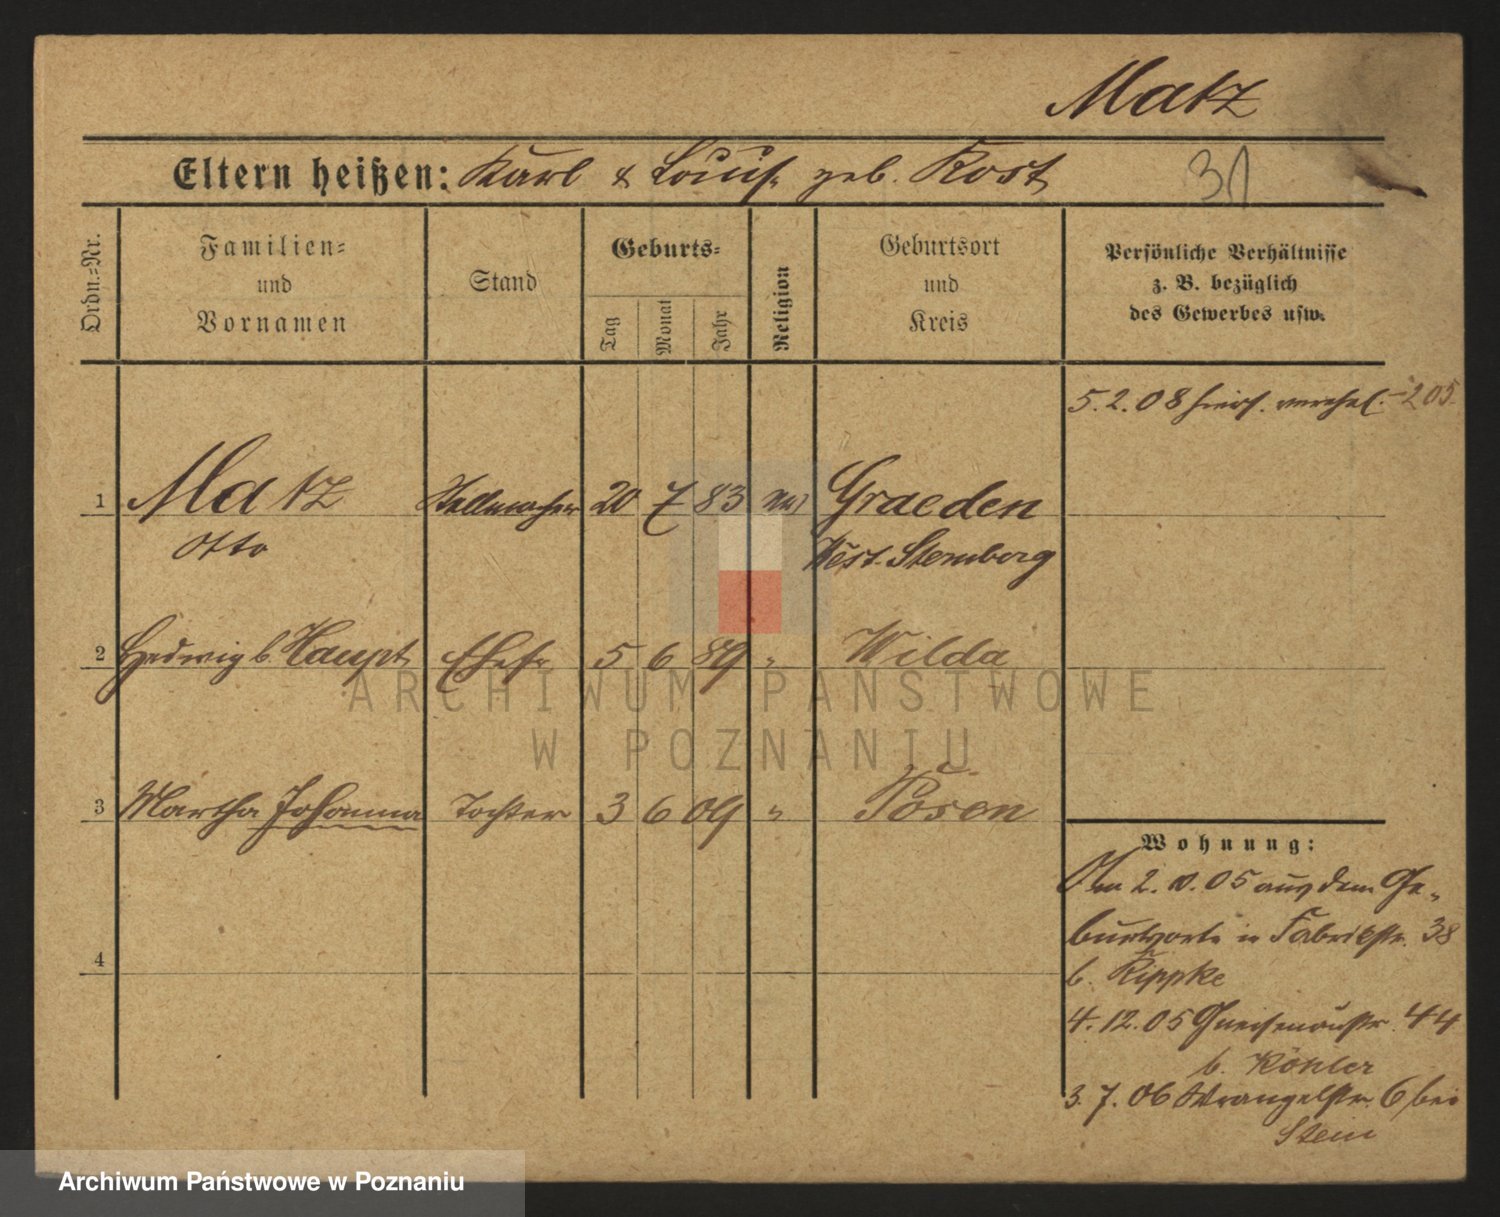 Matz
Eltern heißen: Karl & Louis. geb. Kost
31
Ordn.=Nr.
Familien=
und
Vornamen
Stand
Geburts=
Tag
Monat
Jahr
Religion
Geburtsort
und
Kreis
Persönliche Verhältnisse
z. B. bezüglich
des Gewerbes usw.
5.2.08 hiers. verehel. 205
1 Matz Stellmacher 20 7 83 ev Graeden
Otto West-Sternberg
2 Hedwig b. Haupt Ehefr 5 6 89 " Wilda
ARCHIWUM PAŃSTWOWE
W POZNANIU
3 Martha Johanna Tochter 3 6 09 " Posen
4
Wohnung:
Am 2. 05 aus dem Ge-
burtsorte n Fabrikstr. 38
b. Rippke
4.12.05 Gneisenaustr. 44
b. Köhler
3.7.06 Wrangelstr. 6 bei
Stein
Archiwum Państwowe w Poznaniu